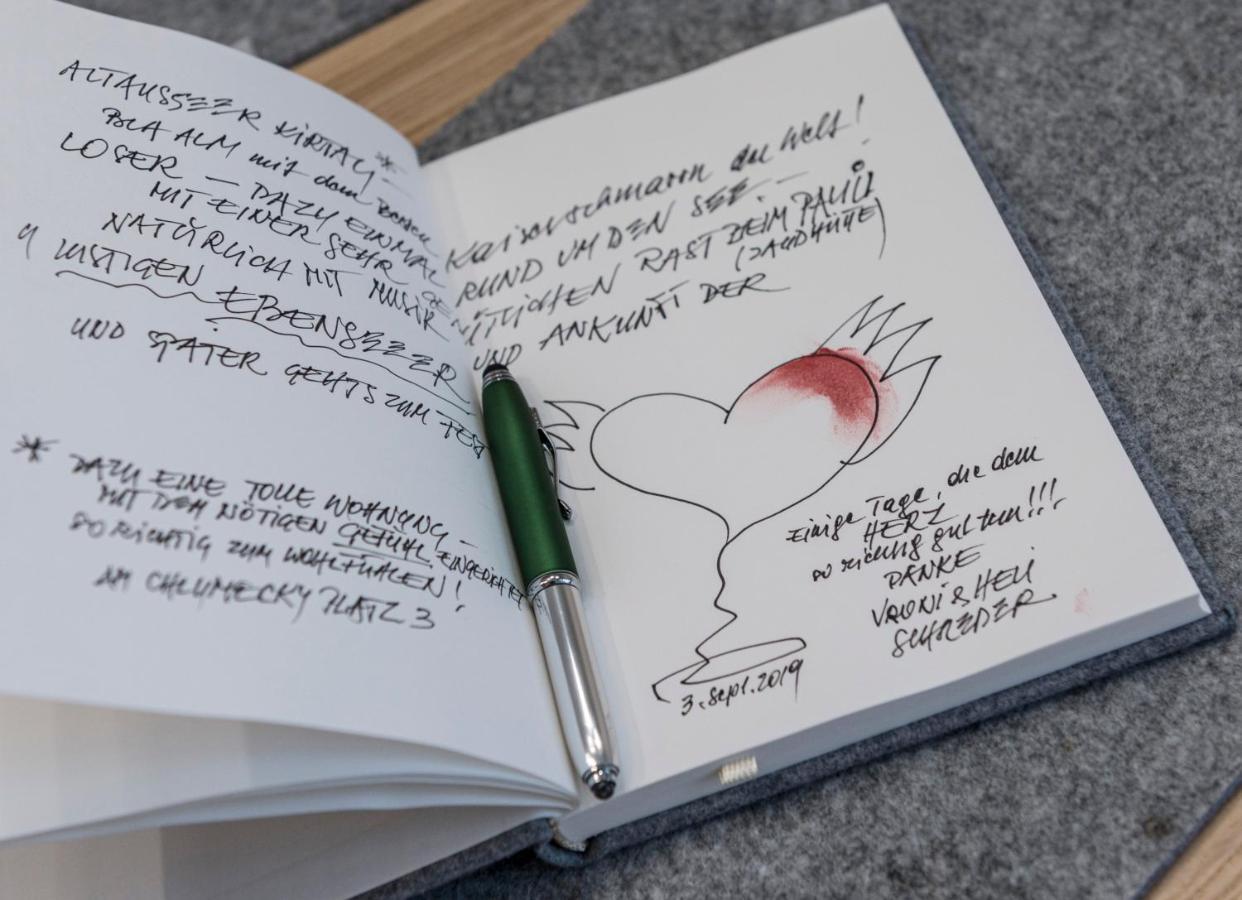 ALTAUSSEER KIRTAG *
BLA ALM mit dem
LOSER – DAZU EINMAL
MIT EINER SEHR
NATÜRLICH MIT MUSIK
LUSTIGEN EBENSEEER
UND SPÄTER GEHTS ZUM
* DAZU EINE TOLLE WOHNUNG –
MIT DEM NÖTIGEN GEFÜHL EINGERICHTET
SO RICHTIG ZUM WOHLFÜHLEN!
AM CHLUMECKY PLATZ 3
Kaiserschmarrn der Welt!
RUND UM DEN SEE. –
RAST BEIM PAULI
UND ANKUNFT DER
Einige Tage, die dem
HERZ
so richtig gut tun!!!
DANKE
& HELI
SCHREDER.
3. Sept. 2019